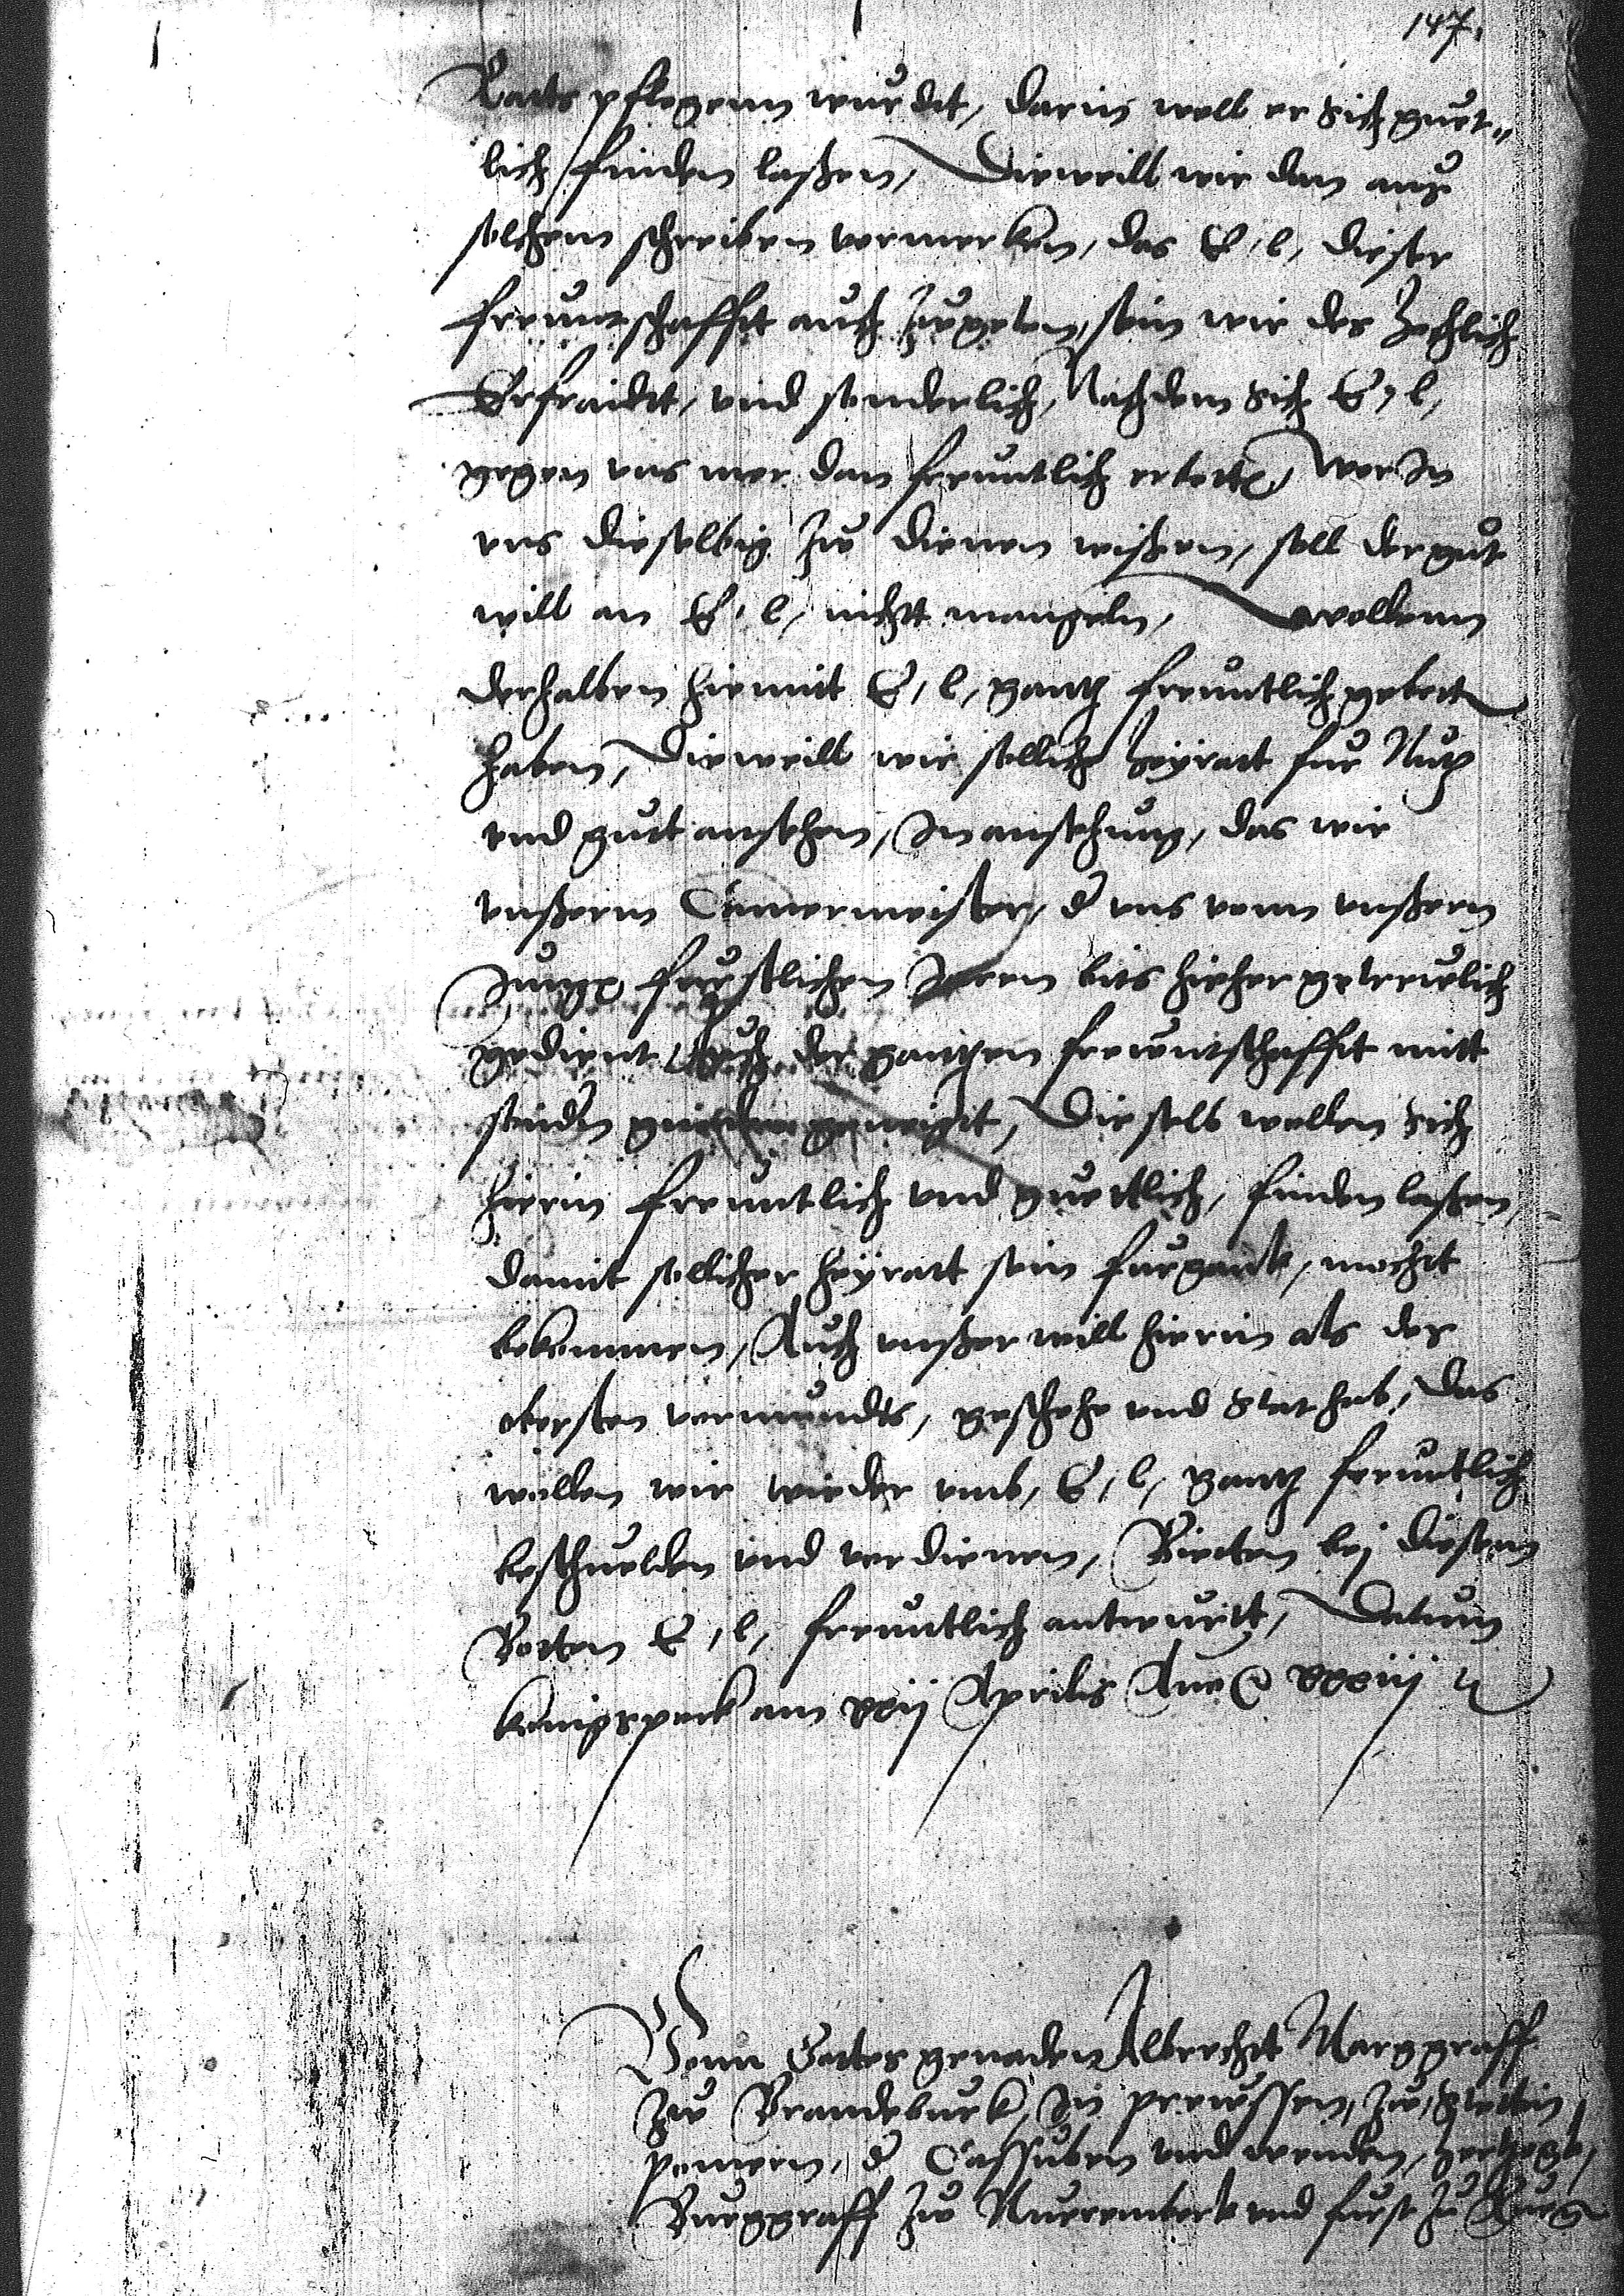 147.
Rats pflegenn wurdt, darin woll er sich guet„
lich finden laßen, Dieweill wir dan auß
solchem schreiben vermerken, das E, l, dieser
freuntschafft auch zugeton, sein wir des hochlich
Erfraidt, vnd sonderlich, Nachdem sich E, l,
gegen vns mer dan freuntlich erbotten, Wor In
vns dieselbig zw dienen wißen, soll der gut
will an E, l, nichtt mangeln, wollenn
derhalben hiemit E, l, gantz freuntlich gebett
haben, Dieweill wir sollich heyratt fur Nutz
vnd gutt ansehen, In ansehung, das wir
vnßerm Camermeister, d vns vonn vnßern
Jungen furstlichen Jaren bits hieher getreulich
gedient, Auch der gantzen freuntschafft mitt
sundern gnaden geneigt, Die selb wollen sich
hierin freuntlich vnd guettlich, finden laßen,
damit sollicher heyratt sein furgank, mocht
bekommen, Auch vnßer will hierin als des
obersten vormundts, geschehe vnd stat hab, Das
wollen wir wieder vmb, E, l, gantz freuntlich
beschulden vnd verdienen, Bietten bej diesem
Botten E, l, freuntlich antwurtt, Datum
konigsperk am xxij Aprilis Anno xxxiij
Vonn Gottes genaden Albrecht Marggraff
zw Brandeburk, In preussen, zw, Stettin,
pomern, d Cassuben vnd wenden, hertzog,
Burggraff zw Nuerembork vnd furst zu Rug